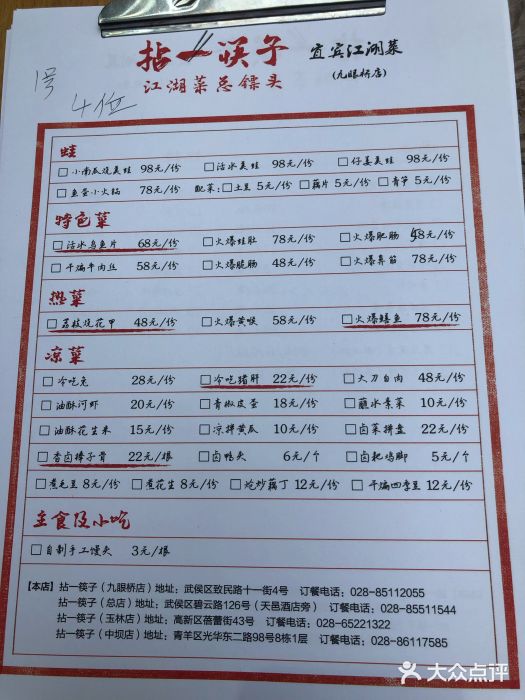 拈一筷子 宜宾江湖菜
江湖菜总镖头 (九眼桥店)
1号
4位
蛙
□小南瓜烧美蛙 98元/份 □活水美蛙 98元/份 □仔姜美蛙 98元/份
□鱼蛋小火锅 78元/份 配菜:□土豆 5元/份 □藕片 5元/份 □青笋 5元/份
特色菜
□活水乌鱼片 68元/份 □火爆蛙肚 78元/份 □火爆肥肠 58元/份
□干煸牛肉丝 58元/份 □火爆脆肠 48元/份 □火爆鼻筋 78元/份
热菜
□荔枝烧花甲 48元/份 □火爆黄喉 58元/份 □火爆鳝鱼 78元/份
凉菜
□冷吃兔 28元/份 □冷吃猪肝 22元/份 □大刀白肉 48元/份
□油酥河虾 20元/份 □青椒皮蛋 18元/份 □蘸水素菜 10元/份
□油酥花生米 15元/份 □凉拌黄瓜 10元/份 □卤菜拼盘 22元/份
□香卤棒子骨 22元/根 □卤鸭头 6元/个 □卤耙鸡脚 5元/个
□煮毛豆 8元/份 □煮花生 8元/份 □炝炒藕丁 12元/份 □干煸四季豆 12元/份
主食及小吃
□自制手工馒头 3元/根
【本店】拈一筷子（九眼桥店）地址：武侯区致民路十一街4号 订餐电话：028-85112055
拈一筷子（总店）地址：武侯区碧云路126号（天邑酒店旁） 订餐电话：028-85511544
拈一筷子（玉林店）地址：高新区蓓蕾街43号 订餐电话：028-65221322
拈一筷子（中坝店）地址：青羊区光华东二路98号8栋1层 订餐电话：028-86117585
大众点评